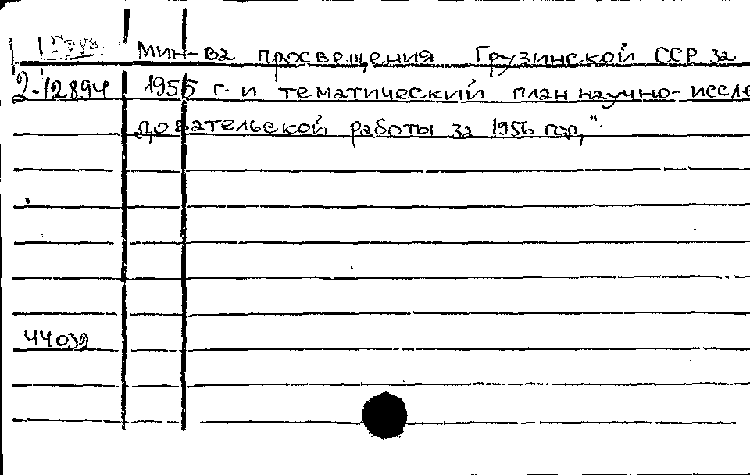 мин-ва просвещения Грузинской ССР за
2-12894 1955 г. и тематический план научно-иссле
довательской работы за 1956 год,"
44039